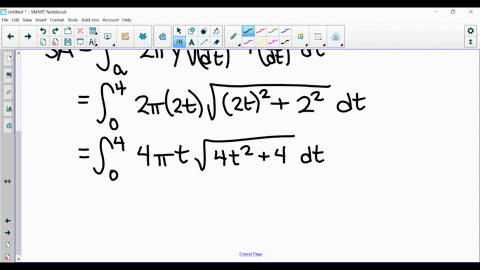 Untitled * - SMART Notebook
File Edit View Insert Format Tools Add-ons Account Help
= ∫₀⁴ 2π(2t)√((2t)² + 2²) dt
= ∫₀⁴ 4πt√(4t² + 4) dt
Extend Page